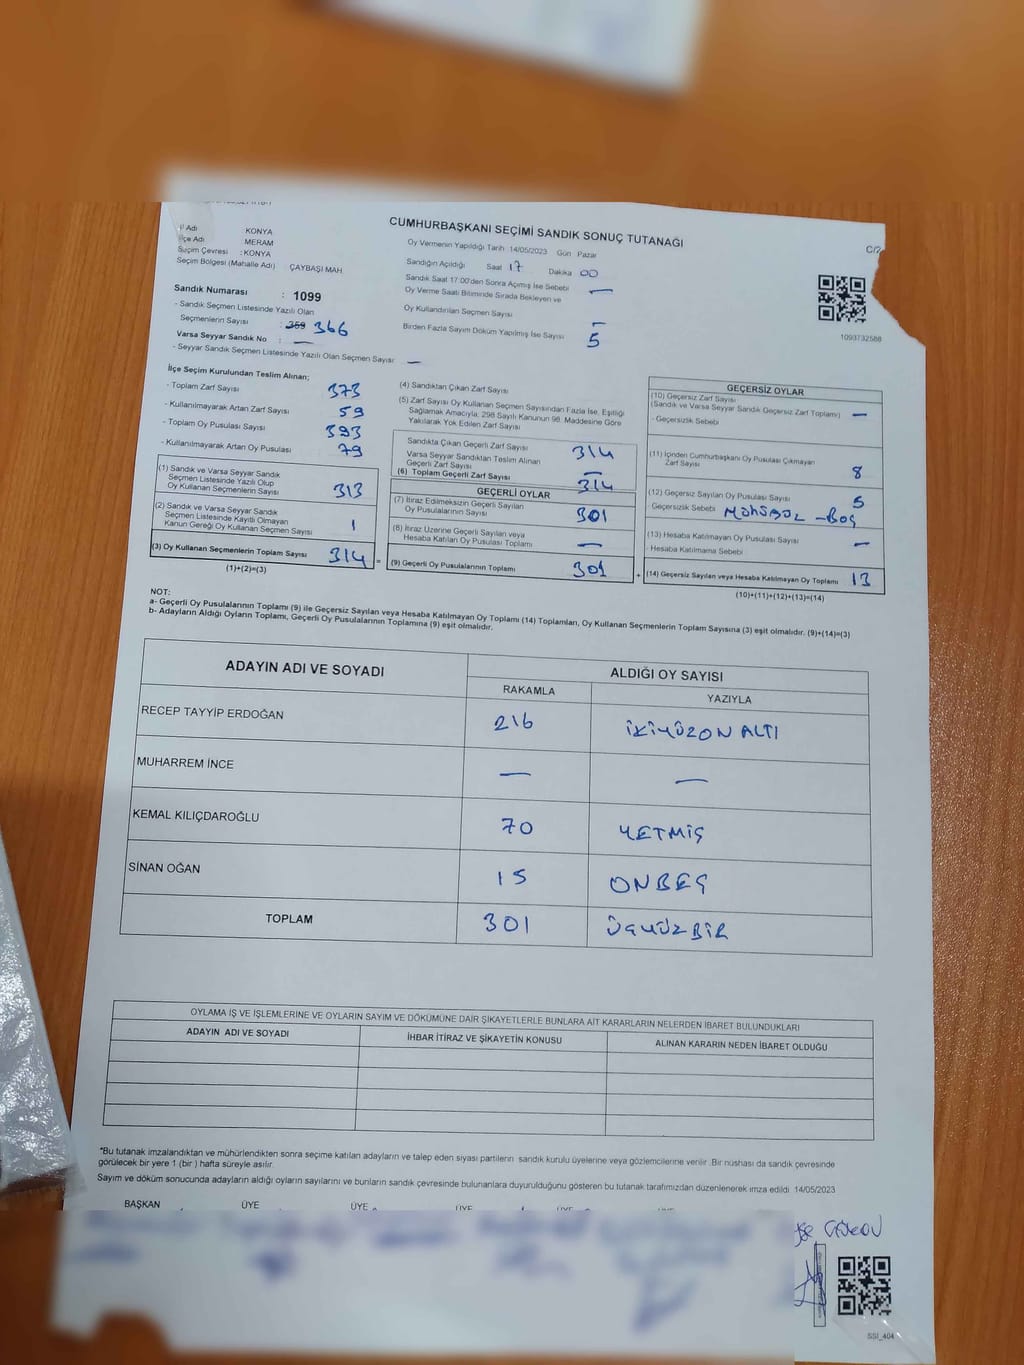 CUMHURBAŞKANI SEÇİMİ SANDIK SONUÇ TUTANAĞI
C/2
İl Adı KONYA
İlçe Adı MERAM
Seçim Çevresi : KONYA
Seçim Bölgesi (Mahalle Adı) ÇAYBAŞI MAH.
Oy Vermenin Yapıldığı Tarih 14/05/2023 Gün Pazar
Sandığın Açıldığı Saat 17 Dakika 00
Sandık Saat 17:00'den Sonra Açılmış İse Sebebi —
Oy Verme Saati Bitiminde Sırada Bekleyen ve
Oy Kullandırılan Seçmen Sayısı —
Birden Fazla Sayım Döküm Yapılmış İse Sayısı 5
1093732588
Sandık Numarası : 1099
- Sandık Seçmen Listesinde Yazılı Olan
Seçmenlerin Sayısı : 359 366
Varsa Seyyar Sandık No : —
- Seyyar Sandık Seçmen Listesinde Yazılı Olan Seçmen Sayısı : —
İlçe Seçim Kurulundan Teslim Alınan;
- Toplam Zarf Sayısı 373
- Kullanılmayarak Artan Zarf Sayısı 59
- Toplam Oy Pusulası Sayısı 393
- Kullanılmayarak Artan Oy Pusulası 79
(1) Sandık ve Varsa Seyyar Sandık
Seçmen Listesinde Yazılı Olup
Oy Kullanan Seçmenlerin Sayısı 313
(2) Sandık ve Varsa Seyyar Sandık
Seçmen Listesinde Kayıtlı Olmayan
Kanun Gereği Oy Kullanan Seçmen Sayısı 1
(3) Oy Kullanan Seçmenlerin Toplam Sayısı 314 =
(1)+(2)=(3)
(4) Sandıktan Çıkan Zarf Sayısı
(5) Zarf Sayısı Oy Kullanan Seçmen Sayısından Fazla İse, Eşitliği
Sağlamak Amacıyla, 298 Sayılı Kanunun 98. Maddesine Göre
Yakılarak Yok Edilen Zarf Sayısı
Sandıkta Çıkan Geçerli Zarf Sayısı 314
Varsa Seyyar Sandıktan Teslim Alınan
Geçerli Zarf Sayısı —
(6) Toplam Geçerli Zarf Sayısı 314
GEÇERLİ OYLAR
(7) İtiraz Edilmeksizin Geçerli Sayılan
Oy Pusulalarının Sayısı 301
(8) İtiraz Üzerine Geçerli Sayılan veya
Hesaba Katılan Oy Pusulası Toplamı —
(9) Geçerli Oy Pusulalarının Toplamı 301 +
GEÇERSİZ OYLAR
(10) Geçersiz Zarf Sayısı
(Sandık ve Varsa Seyyar Sandık Geçersiz Zarf Toplamı) —
- Geçersizlik Sebebi
(11) İçinden Cumhurbaşkanı Oy Pusulası Çıkmayan
Zarf Sayısı 8
(12) Geçersiz Sayılan Oy Pusulası Sayısı 5
- Geçersizlik Sebebi MÜHÜRSÜZ - BOŞ
(13) Hesaba Katılmayan Oy Pusulası Sayısı —
- Hesaba Katılmama Sebebi
(14) Geçersiz Sayılan veya Hesaba Katılmayan Oy Toplamı 13
(10)+(11)+(12)+(13)=(14)
NOT:
a- Geçerli Oy Pusulalarının Toplamı (9) ile Geçersiz Sayılan veya Hesaba Katılmayan Oy Toplamı (14) Toplamları, Oy Kullanan Seçmenlerin Toplam Sayısına (3) eşit olmalıdır. (9)+(14)=(3)
b- Adayların Aldığı Oyların Toplamı, Geçerli Oy Pusulalarının Toplamına (9) eşit olmalıdır.
ADAYIN ADI VE SOYADI ALDIĞI OY SAYISI
RAKAMLA YAZIYLA
RECEP TAYYİP ERDOĞAN 216 İKİYÜZONALTI
MUHARREM İNCE — —
KEMAL KILIÇDAROĞLU 70 YETMİŞ
SİNAN OĞAN 15 ONBEŞ
TOPLAM 301 ÜÇYÜZBİR
OYLAMA İŞ VE İŞLEMLERİNE VE OYLARIN SAYIM VE DÖKÜMÜNE DAİR ŞİKAYETLERLE BUNLARA AİT KARARLARIN NELERDEN İBARET BULUNDUKLARI
ADAYIN ADI VE SOYADI İHBAR İTİRAZ VE ŞİKAYETİN KONUSU ALINAN KARARIN NEDEN İBARET OLDUĞU
*Bu tutanak imzalandıktan ve mühürlendikten sonra seçime katılan adayların ve talep eden siyasi partilerin sandık kurulu üyelerine veya gözlemcilerine verilir. Bir nüshası da sandık çevresinde
görülecek bir yere 1 (bir ) hafta süreyle asılır.
Sayım ve döküm sonucunda adayların aldığı oyların sayılarını ve bunların sandık çevresinde bulunanlara duyurulduğunu gösteren bu tutanak tarafımızdan düzenlenerek imza edildi 14/05/2023
BAŞKAN ÜYE ÜYE ÜYE ÜYE
SSI_404